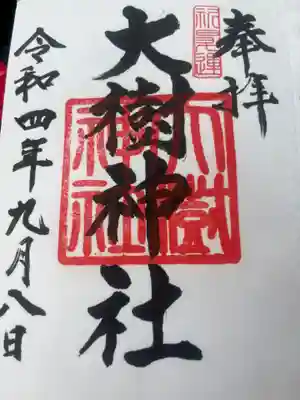 奉拝
大樹神社
大樹神社
令和四年九月八日